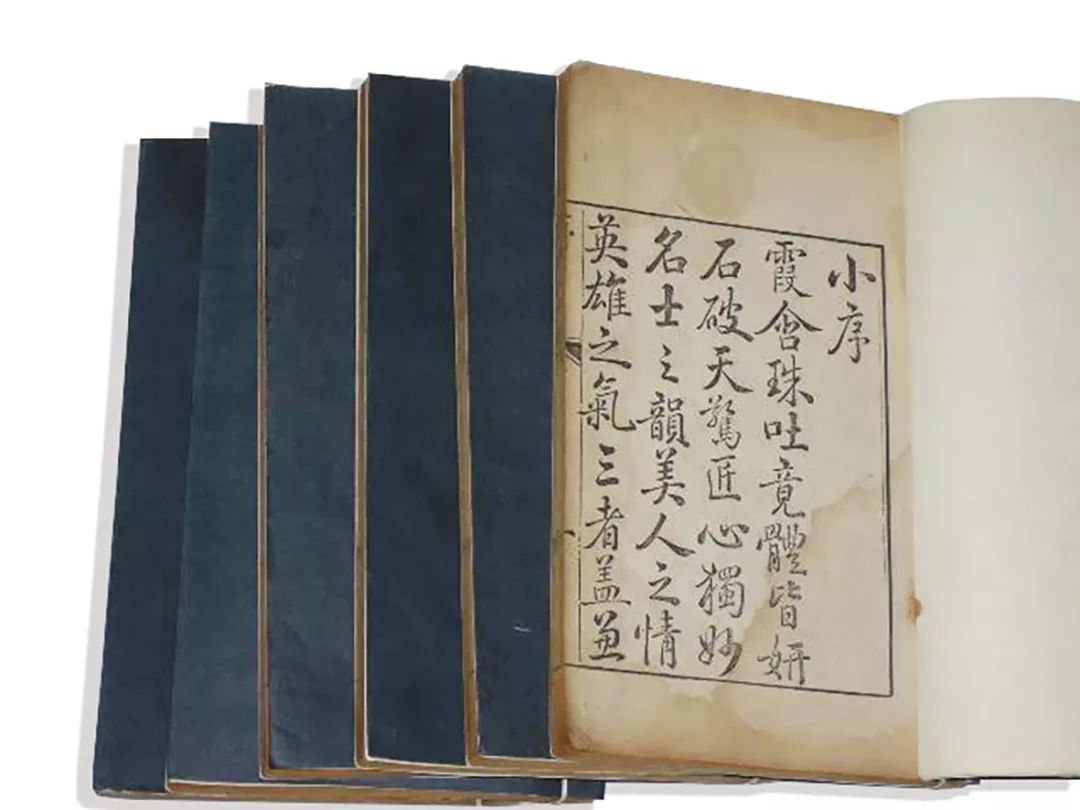 小序
霞含珠吐竟體皆妍
石破天驚匠心獨妙
名士之韻美人之情
英雄之氣三者蓋兼